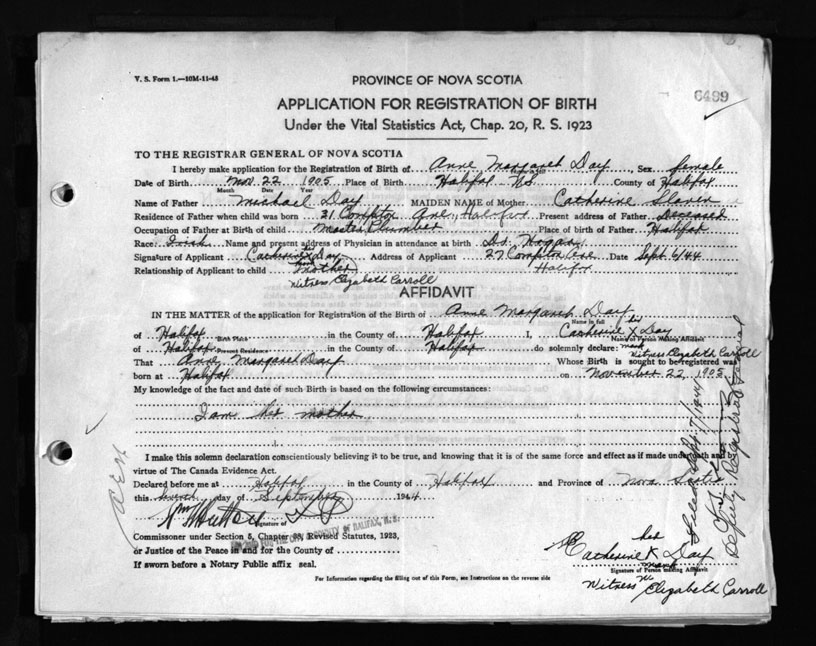 V. S. Form 1.—10M-11-43
PROVINCE OF NOVA SCOTIA
6499
APPLICATION FOR REGISTRATION OF BIRTH
Under the Vital Statistics Act, Chap. 20, R. S. 1923
TO THE REGISTRAR GENERAL OF NOVA SCOTIA
I hereby make application for the Registration of Birth of Anne Margaret Day Sex female
Name in full
Date of Birth Nov. 22 1905 Place of Birth Halifax N.S. County of Halifax
Month Date Year
Name of Father Michael Day MAIDEN NAME of Mother Catherine Slavin
Residence of Father when child was born 21 Compton Ave, Halifax Present address of Father Deceased
Occupation of Father at Birth of child Master Plumber Place of birth of Father Halifax
Race Irish Name and present address of Physician in attendance at birth Dr. Hogan
Signature of Applicant Catherine X Day Address of Applicant 27 Compton Ave Date Sept. 6/44
her mark
Relationship of Applicant to child Mother Halifax
Witness Elizabeth Carroll
AFFIDAVIT
IN THE MATTER of the application for Registration of the Birth of Anne Margaret Day
Name in full
of Halifax in the County of Halifax I, Catherine X Day
Birth Place her Name of Person Making Affidavit
of Halifax in the County of Halifax do solemnly declare: mark
Present Residence Witness Elizabeth Carroll
That Anne Margaret Day Whose Birth is sought to be registered was
born at Halifax on November 22, 1905
My knowledge of the fact and date of such Birth is based on the following circumstances:
I am her mother
I make this solemn declaration conscientiously believing it to be true, and knowing that it is of the same force and effect as if made under oath and
virtue of The Canada Evidence Act.
Declared before me at Halifax in the County of Halifax and Province of Nova Scotia
this seventh day of September 1944
Signature of
Commissioner under Section 5, Chapter 38, Revised Statutes, 1923,
or Justice of the Peace in and for the County of
If sworn before a Notary Public affix seal.
her
Catherine X Day
mark
Signature of Person making Affidavit
Witness Elizabeth Carroll
For Information regarding the filling out of this Form, see Instructions on the reverse side
Deputy Registrar General